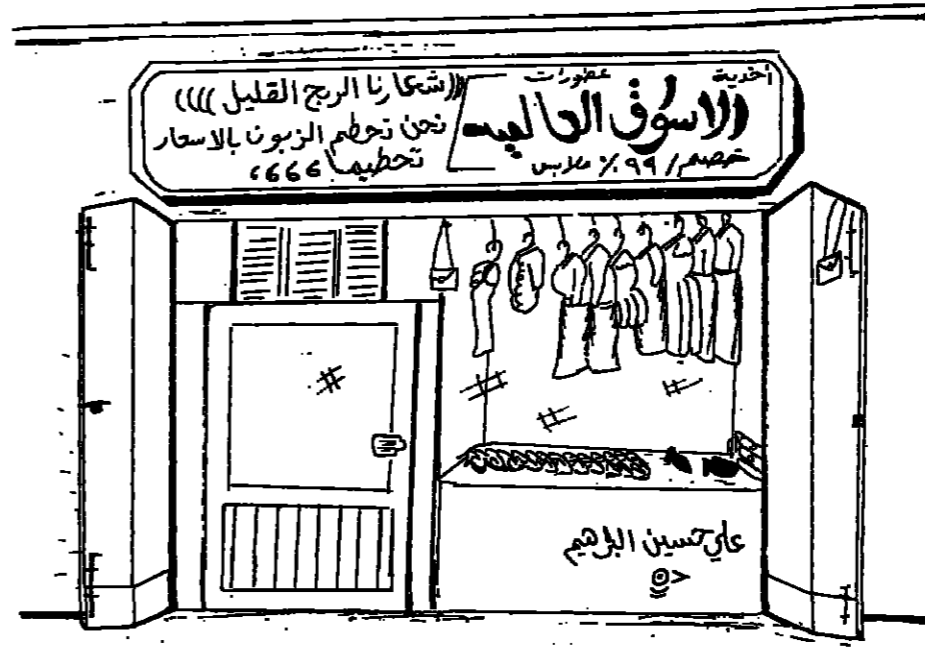 أحذية عطورات
الاسوق العالميه
خصم / ٩٩ ٪ ملابس
((شعارنا الربح القليل ))))
نحن نحطم الزبون بالاسعار
تحطيما ،،666
علي حسين البراهيم